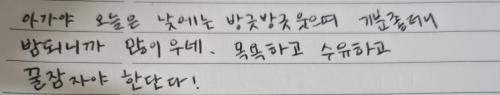 아가야 오늘은 낮에는 방긋방긋 웃으며 기분좋더니
밤되니까 많이 우네. 목욕하고 수유하고
꿀잠자야 한단다!